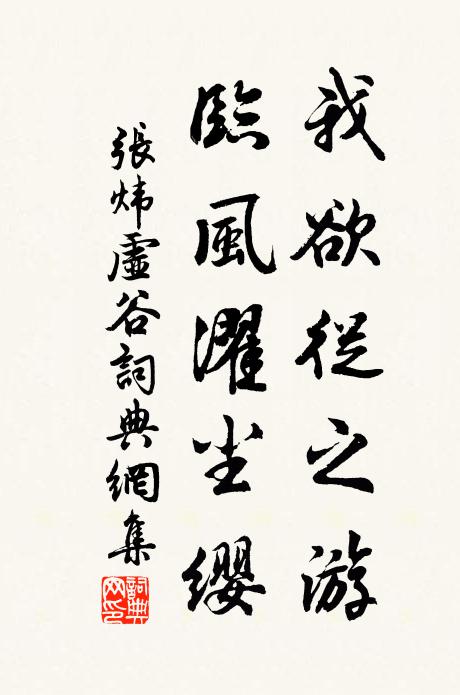 我欲從之游
臨風濯尘纓
張炜虛谷詞典網集
詞典网印